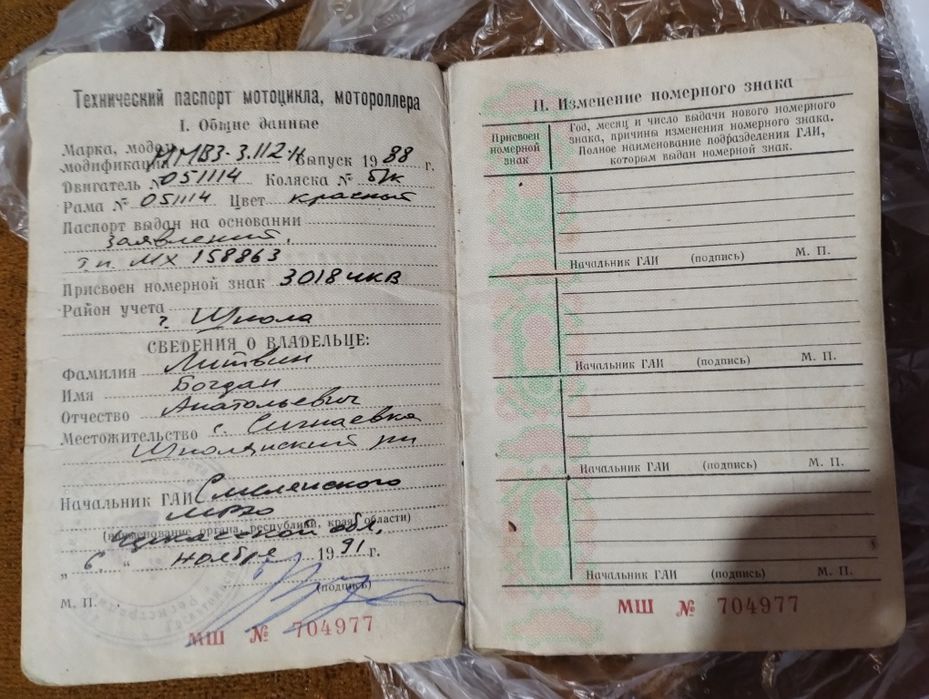 Технический паспорт мотоцикла, мотороллера
I. Общие данные
Марка, модель,
модификация ММВЗ-3.112-Н Выпуск 1988 г.
Двигатель № 051114 Коляска № Б/К
Рама № 051114 Цвет красный
Паспорт выдан на основании
заявления.
т.п. МХ 158863
Присвоен номерной знак 3018 ЧКВ
Район учета
г. Шпола
СВЕДЕНИЯ О ВЛАДЕЛЬЦЕ:
Фамилия Литвин
Имя Богдан
Отчество Анатольевич
Местожительство с. Сигнаевка
Шполянский рн
Начальник ГАИ Смелянского
МРЭО
(наименование органа, республики, края, области)
обл.
„ 6. “ ноября 1991 г.
(подпись)
М. П.
МШ № 704977
II. Изменение номерного знака
Присвоен
номерной
знак
Год, месяц и число выдачи нового номерного
знака, причины изменения номерного знака.
Полное наименование подразделения ГАИ,
которым выдан номерной знак.
Начальник ГАИ (подпись) М. П.
Начальник ГАИ (подпись) М. П.
Начальник ГАИ (подпись) М. П.
Начальник ГАИ (подпись) М. П.
МШ № 704977